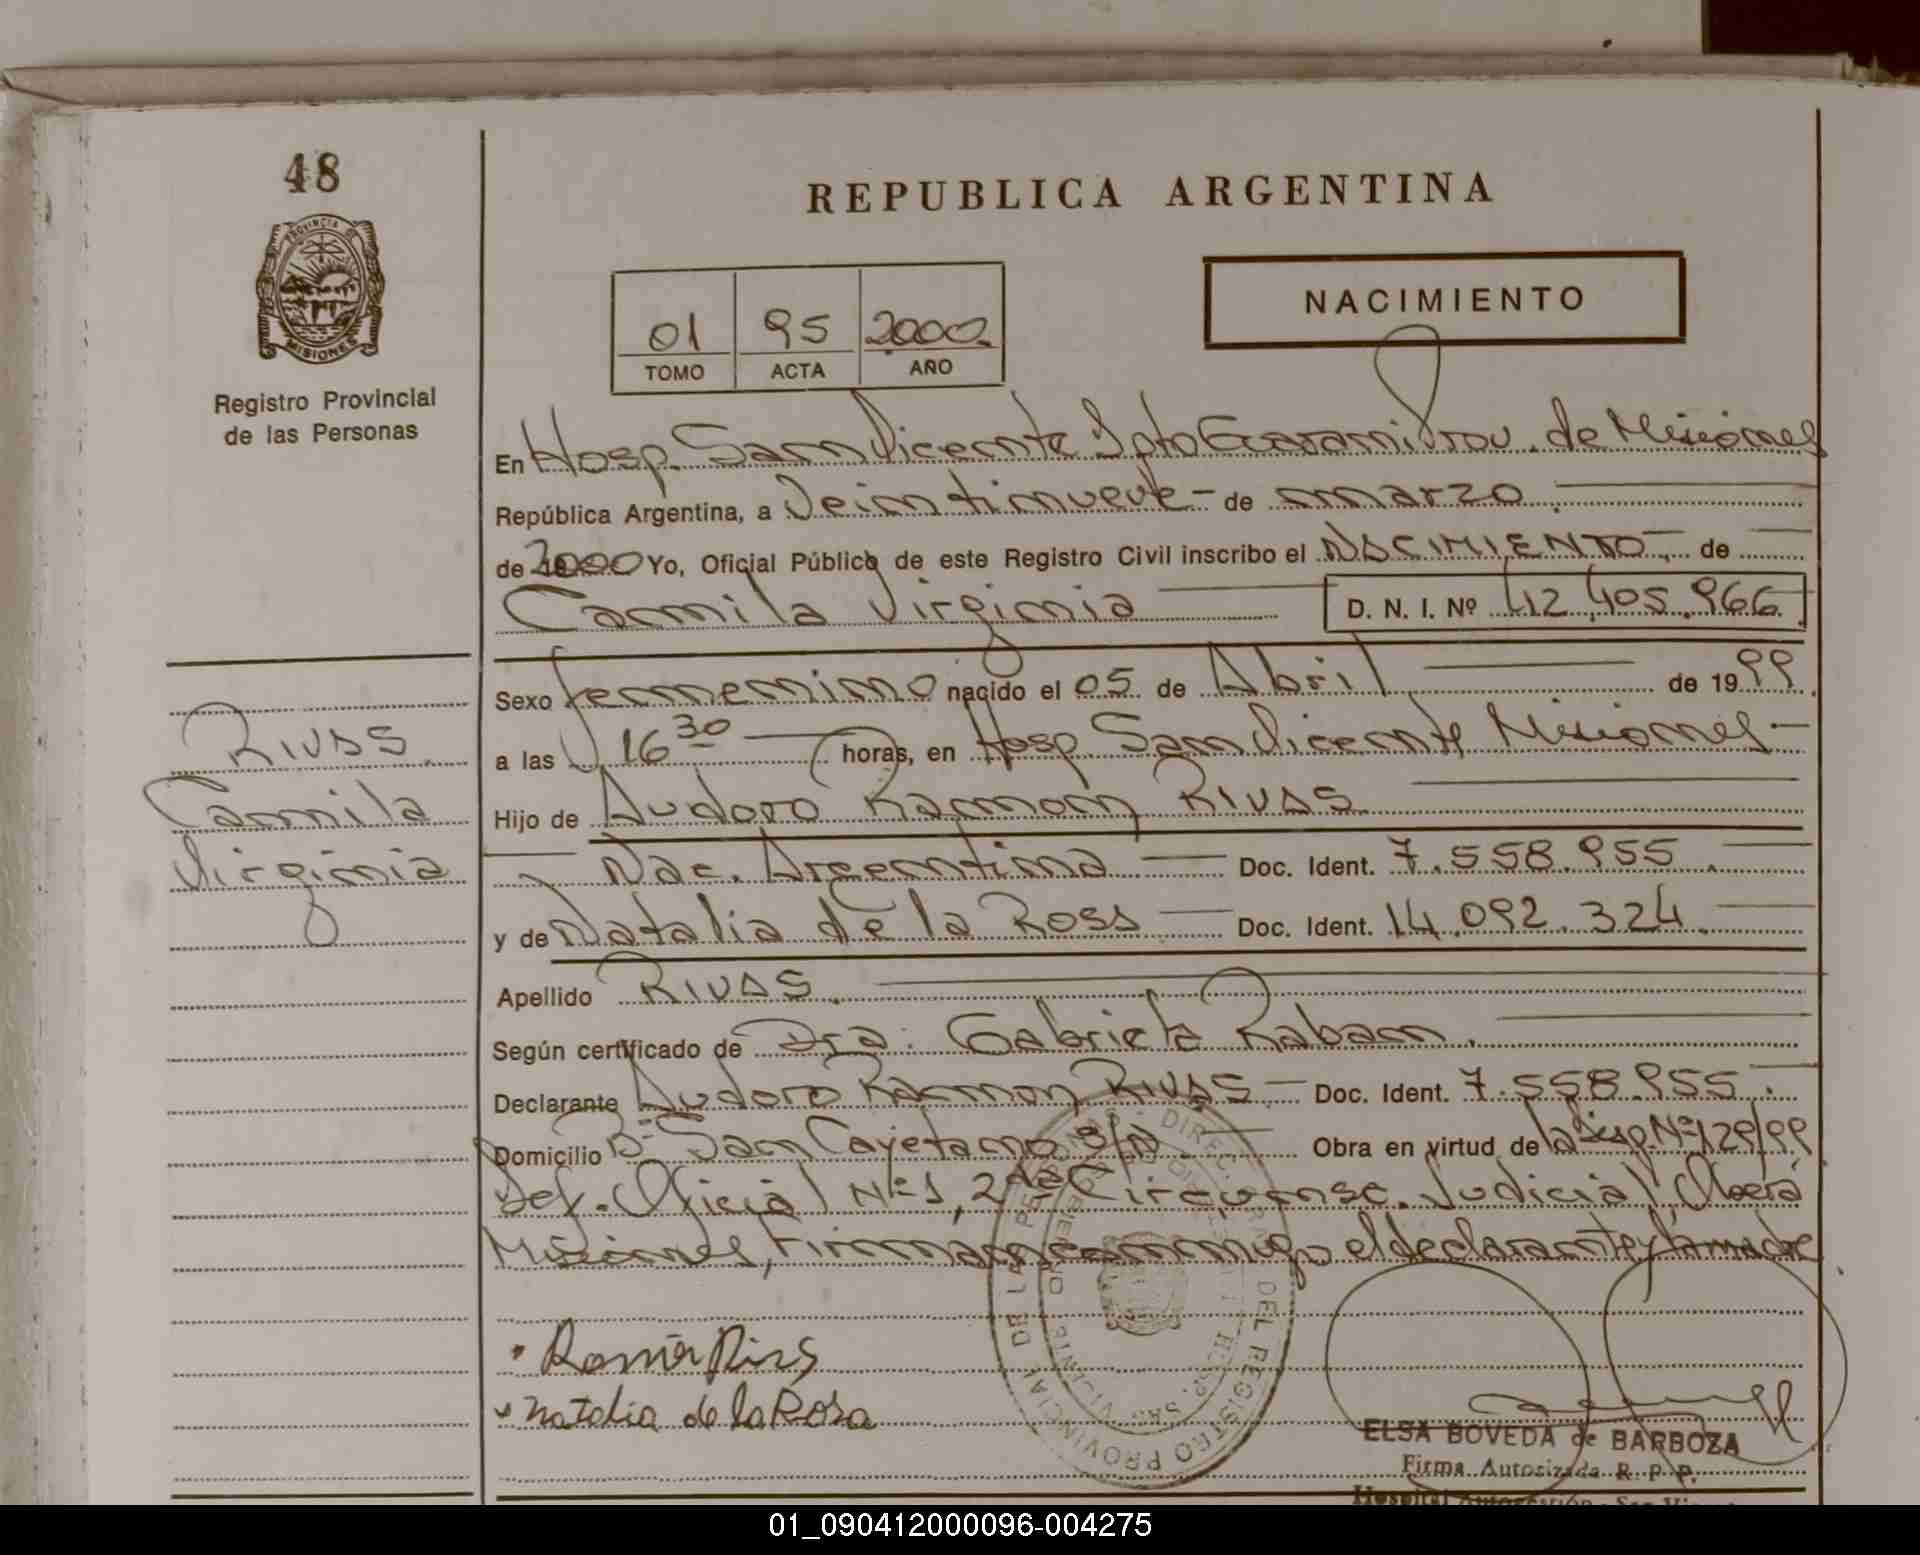 48
REPUBLICA ARGENTINA
PROVINCIA DE
MISIONES
Registro Provincial
de las Personas
NACIMIENTO
01 95 2000
TOMO ACTA AÑO
En Hosp. San Vicente Dpto Guarani Prov. de Misiones
República Argentina, a Veintinueve - de marzo
de 2000 Yo, Oficial Público de este Registro Civil inscribo el NACIMIENTO - de
Camila Virginia D. N. I. Nº 42.405.966
Sexo femenino nacido el 05 de Abril de 1999
a las 16 30 horas, en Hosp San Vicente, Misiones -
Hijo de Audoro Ramon RIVAS
Nac. Argentina Doc. Ident. 7.558.955
y de Natalia de la Rosa Doc. Ident. 14.092.324
Apellido RIVAS
Según certificado de Dra. Gabriela Raban
Declarante Audoro Ramon RIVAS - Doc. Ident. 7.558.955
Domicilio Bº San Cayetano S/N Obra en virtud de la Disp. Nº 129/99
Def. Oficial Nº 1, 2da Circunsc. Judicial Oberá
Misiones, Firman conmigo el declarante y la madre
Rivas
Camila
Virginia
Natalia de la Rosa
ELSA BOVEDA de BARBOZA
Firma Autorizada R. P. P.
01_090412000096-004275